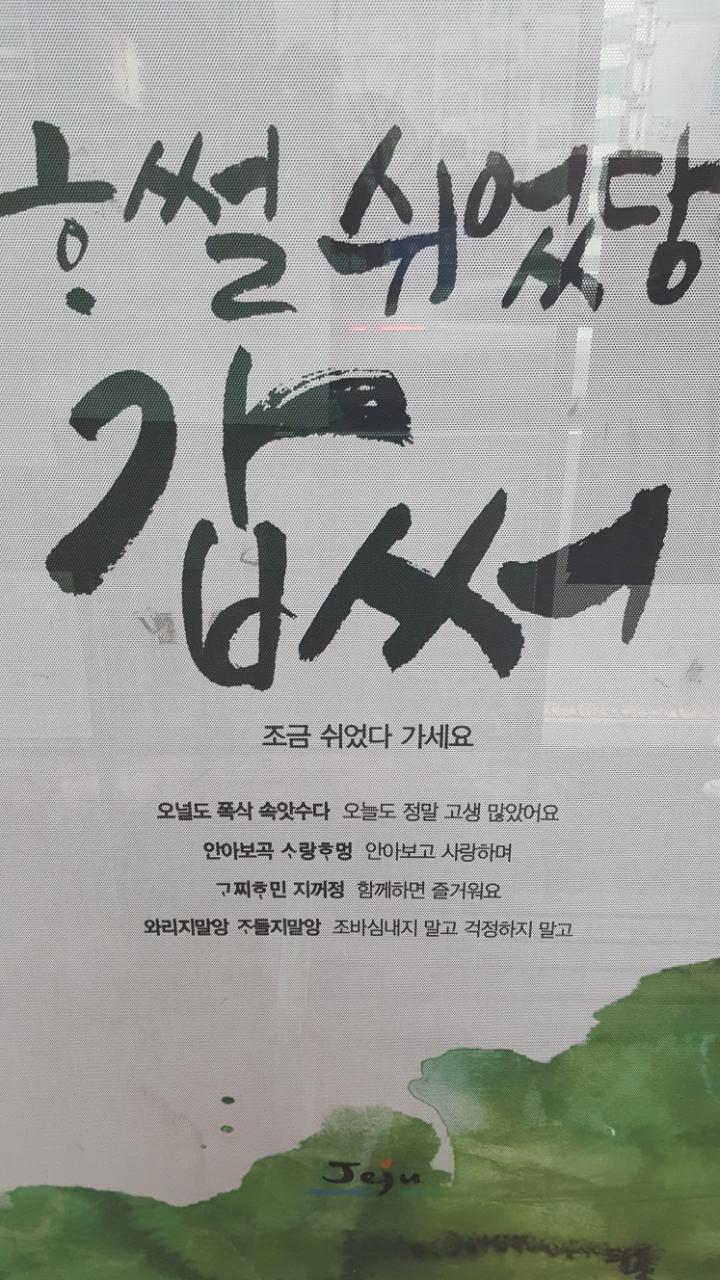 ᄒᆞᆼ썰 쉬었당
갑써
조금 쉬었다 가세요
오널도 폭삭 속앗수다 오늘도 정말 고생 많았어요
안아보곡 ᄉᆞ랑ᄒᆞ멍 안아보고 사랑하며
ᄀᆞ찌ᄒᆞ민 지꺼정 함께하면 즐거워요
와리지말앙 ᄌᆞ들지말앙 조바심내지 말고 걱정하지 말고
Jeju